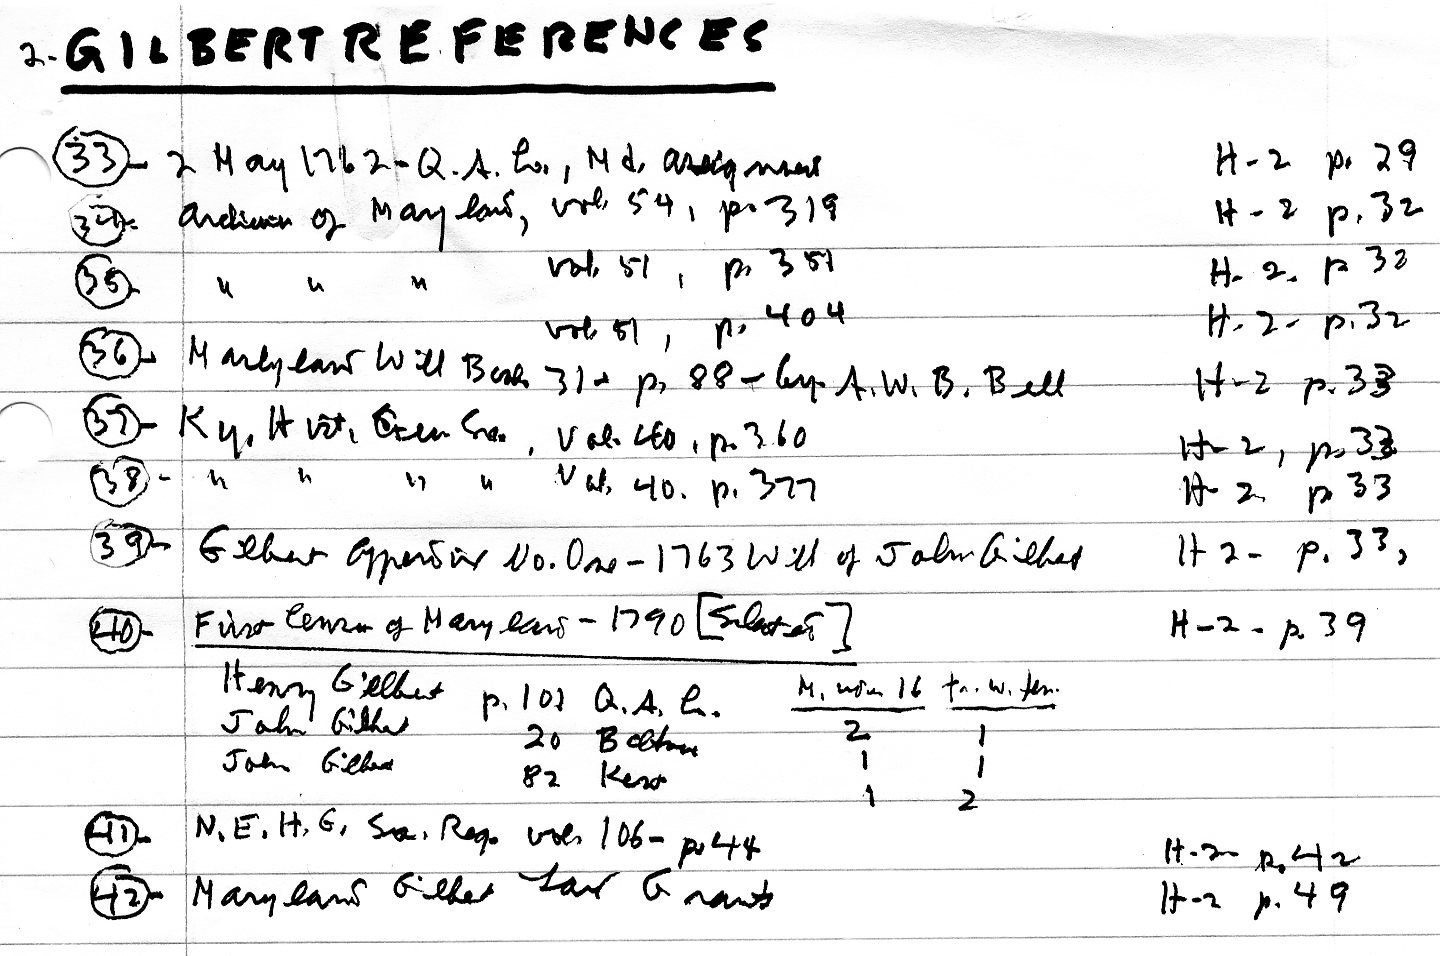 2- GILBERT REFERENCES
33- 2 May 1762 - Q.A. Co., Md. assignment H-2 p. 29
34- Archives of Maryland, vol. 54, p. 319 H-2 p. 32
35- " " " vol. 51, p. 351 H-2. p 32
vol. 51, p. 404 H-2- p. 32
36- Marlyland Will Book 31- p. 88 - by A.W.B. Bell H-2 p. 33
37- Ky. Hist. Gen. Soc., Vol. 40, p. 360 H-2, p. 33
38- " " " " Vol. 40. p. 377 H-2 p 33
39- Gilbert Appendix No. One - 1763 Will of John Gilbert H2- p. 33,
40- First Census of Maryland - 1790 [Selected] H-2- p. 39
M. over 16 fr. w. fem.
Henry Gilbert p. 101 Q.A. Co. 2 1
John Gilbert 20 Baltimore 1 1
John Gilbert 82 Kent 1 2
41- N.E.H.G. Soc. Reg. vol. 106- p. 44 H-2- p. 42
42- Maryland Gilbert Land Grants H-2 p. 49